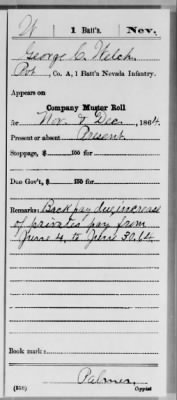 W | 1 Batt'n. | Nev.
George C. Welch
Pvt, Co. A, 1 Batt'n Nevada Infantry.
Appears on
Company Muster Roll
for Nov. & Dec., 1864.
Present or absent Present
Stoppage, $ 100 for
Due Gov't, $ 100 for
Remarks: Back pay due, increase
of privates pay from
June 4, to June 30, 64.
Book mark:
Palmer
(858) Copyist.